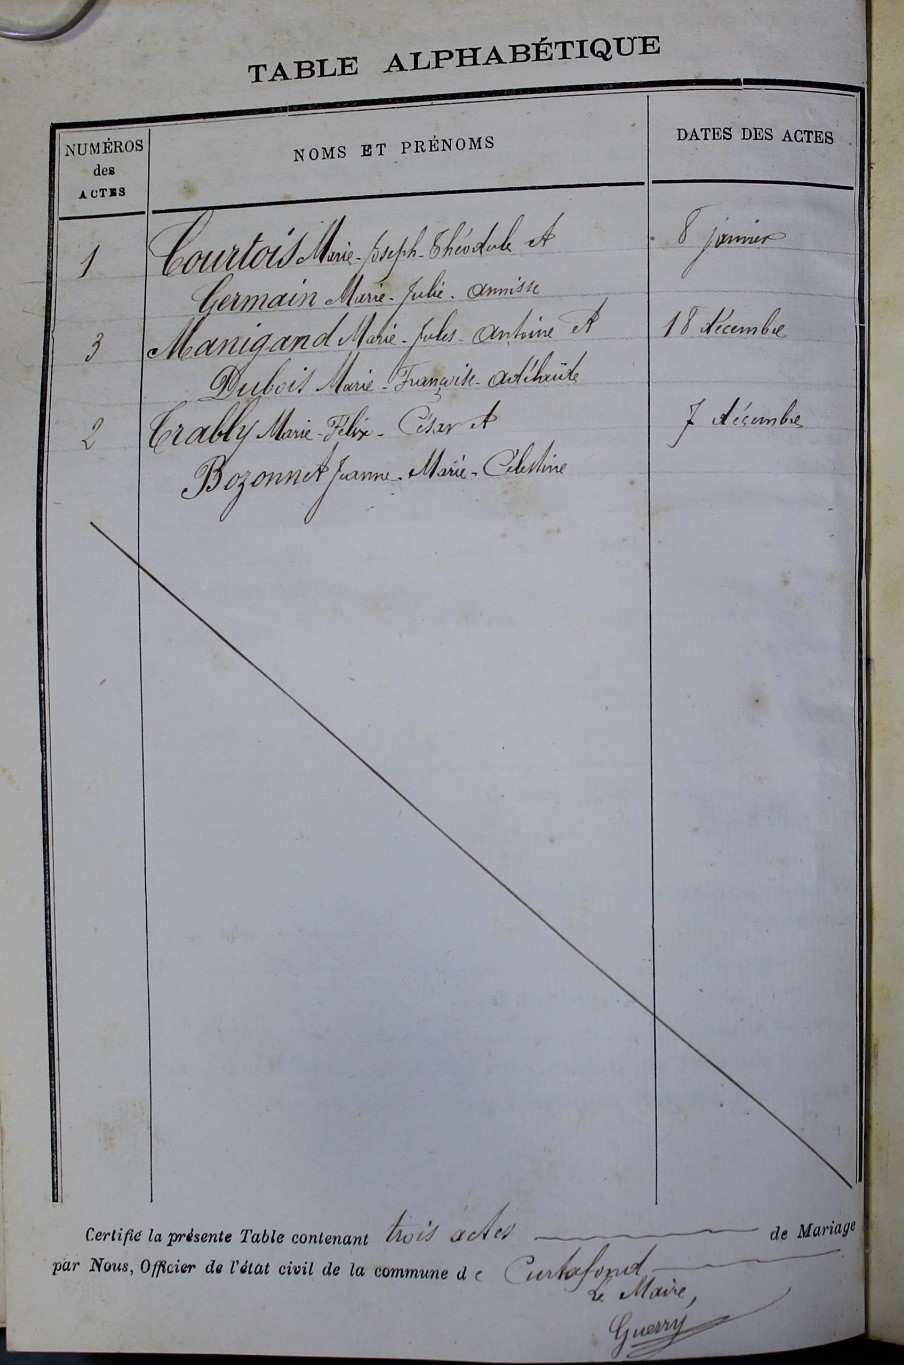 TABLE ALPHABÉTIQUE
NUMÉROS
des
ACTES
NOMS ET PRÉNOMS
DATES DES ACTES
1 Courtois Marie-Joseph-Théodule et 8 janvier
Germain Marie-Julie-
3 Manigand Marie-Jules-Antoine et 18 décembre
Dubois Marie-Françoise-
2 Trably Marie-Félix-César et 7 décembre
Bozonnet Jeanne-Marie-Célestine
Certifié la présente Table contenant trois actes de Mariage
par Nous, Officier de l'état civil de la commune de Curtafond
Le Maire,
Guerry